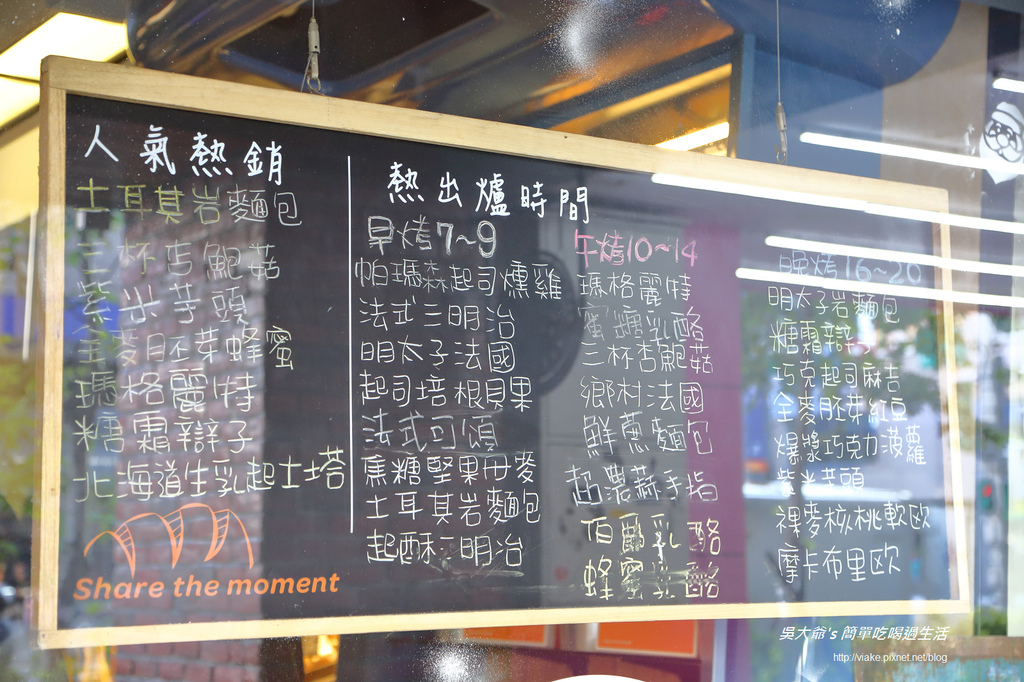 人氣熱銷
土耳其岩麵包
三杯杏鮑菇
紫米芋頭
全麥胚芽蜂蜜
瑪格麗特
糖霜辮子
北海道生乳起士塔
Share the moment
熱出爐時間
早烤7~9
帕瑪森起司燻雞
法式三明治
明太子法國
起司培根貝果
法式可頌
焦糖堅果丹麥
土耳其岩麵包
起酥三明治
午烤10~14
瑪格麗特
蜜糖乳酪
三杯杏鮑菇
鄉村法國
鮮蔥麵包
超濃蒜手指
伯爵乳酪
蜂蜜乳酪
晚烤16~20
明太子岩麵包
糖霜辮子
巧克起司麻吉
全麥胚芽紅豆
爆漿巧克力菠蘿
紫米芋頭
裸麥核桃軟歐
摩卡布里歐
吳大爺's 簡單吃喝過生活
http://viake.pixnet.net/blog